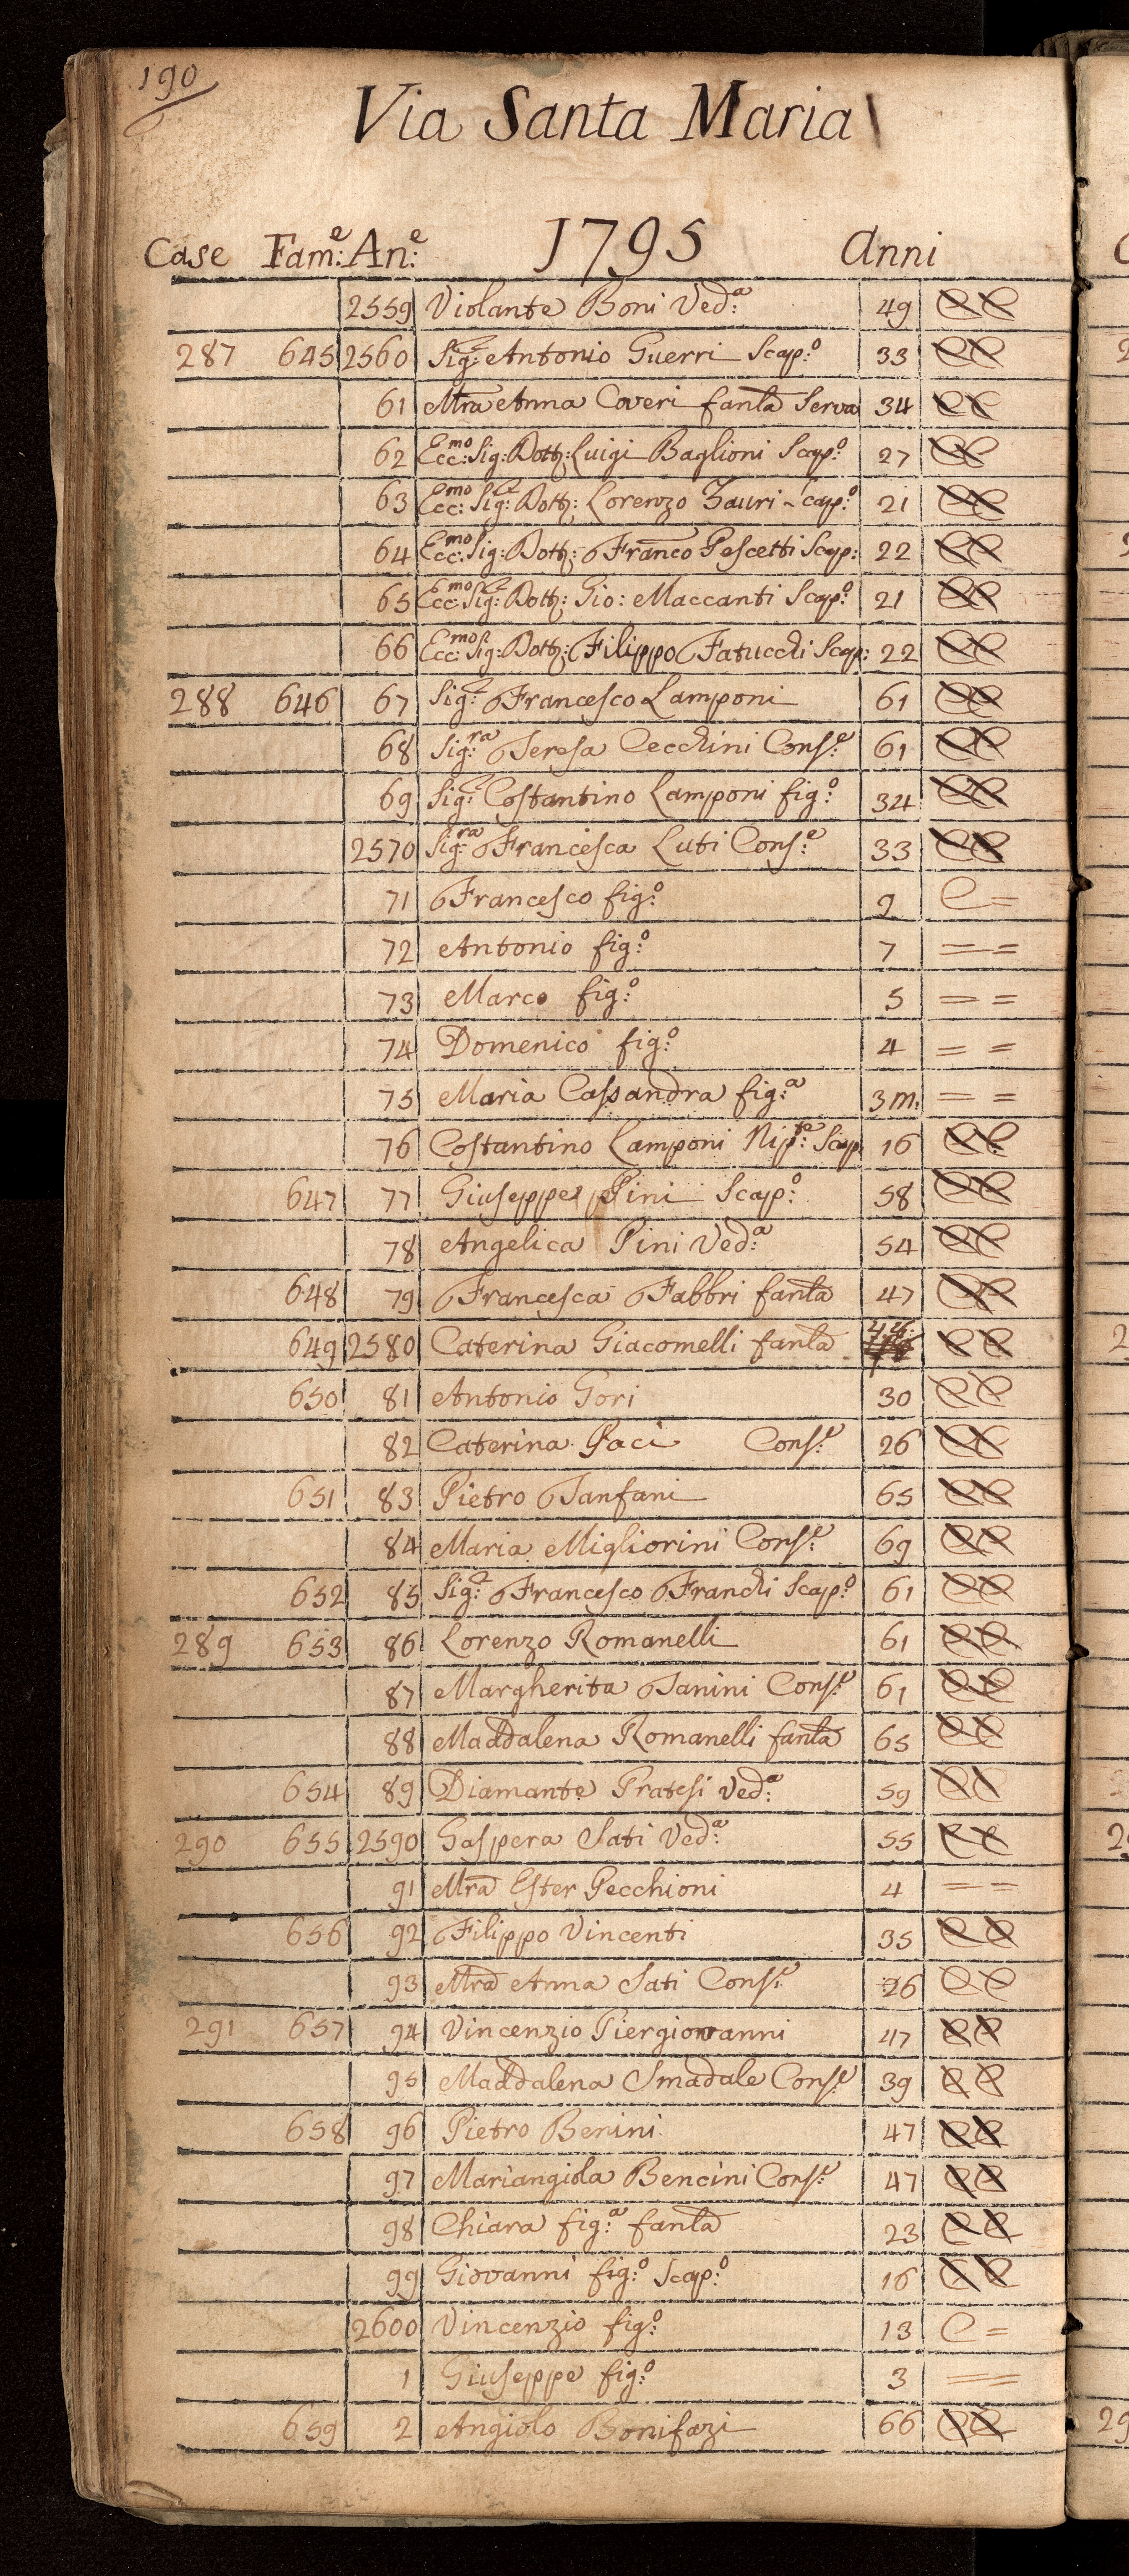 190
Via Santa Maria
1795
Case Fam:e An:e Anni
2559 Violante Boni Ved:a 49
287 645 2560 Sig:r Antonio Guerri Scap:o 33
61 Mra Anna Coveri fanla Serva 34
62 Ecc:mo Sig: Dott: Luigi Baglioni Scap:o 27
63 Ecc:mo Sig:r Dott: Lorenzo Scap:o 21
64 Ecc:mo Sig: Dott: Franco Pescetti Scap: 22
65 Ecc:mo Sig:r Dott: Gio: Maccanti Scap:o 21
66 Ecc:mo Sig:r Dott: Filippo Fatucchi Scap: 22
288 646 67 Sig:r Francesco Lamponi 61
68 Sig:ra Teresa Cecchini Cons:e 61
69 Sig:r Costantino Lamponi fig:o 34
2570 Sig:ra Francesca Luti Cons:e 33
71 Francesco fig:o 9 C =
72 Antonio fig:o 7 = =
73 Marco fig:o 5 = =
74 Domenico fig:o 4 = =
75 Maria Cassandra fig:a 3 m. = =
76 Costantino Lamponi Nip:te Scap: 16
647 77 Giuseppe Pini Scap:o 58
78 Angelica Pini Ved:a 54
648 79 Francesca Fabbri fanla 47
649 2580 Caterina Giacomelli fanla
650 81 Antonio Gori 30
82 Caterina Paci Cons:e 26
651 83 Pietro Tanfani 65
84 Maria Migliorini Cons:e 69
652 85 Sig:r Francesco Franchi Scap:o 61
289 653 86 Lorenzo Romanelli 61
87 Margherita Tanini Cons:e 61
88 Maddalena Romanelli fanla 65
654 89 Diamante Pratesi Ved:a 59
290 655 2590 Gaspera Sati Ved:a 55
91 Mra Ester Pecchioni 4 = =
656 92 Filippo Vincenti 35
93 Mra Anna Sati Cons:e 26
291 657 94 Vincenzio Piergiovanni 47
95 Maddalena Smadale Cons:e 39
658 96 Pietro Benini 47
97 Mariangiola Bencini Cons:e 47
98 Chiara fig:a fanla 23
99 Giovanni fig:o Scap:o 16
2600 Vincenzio fig:o 13 C =
1 Giuseppe fig:o 3 = =
659 2 Angiolo Bonifazi 66